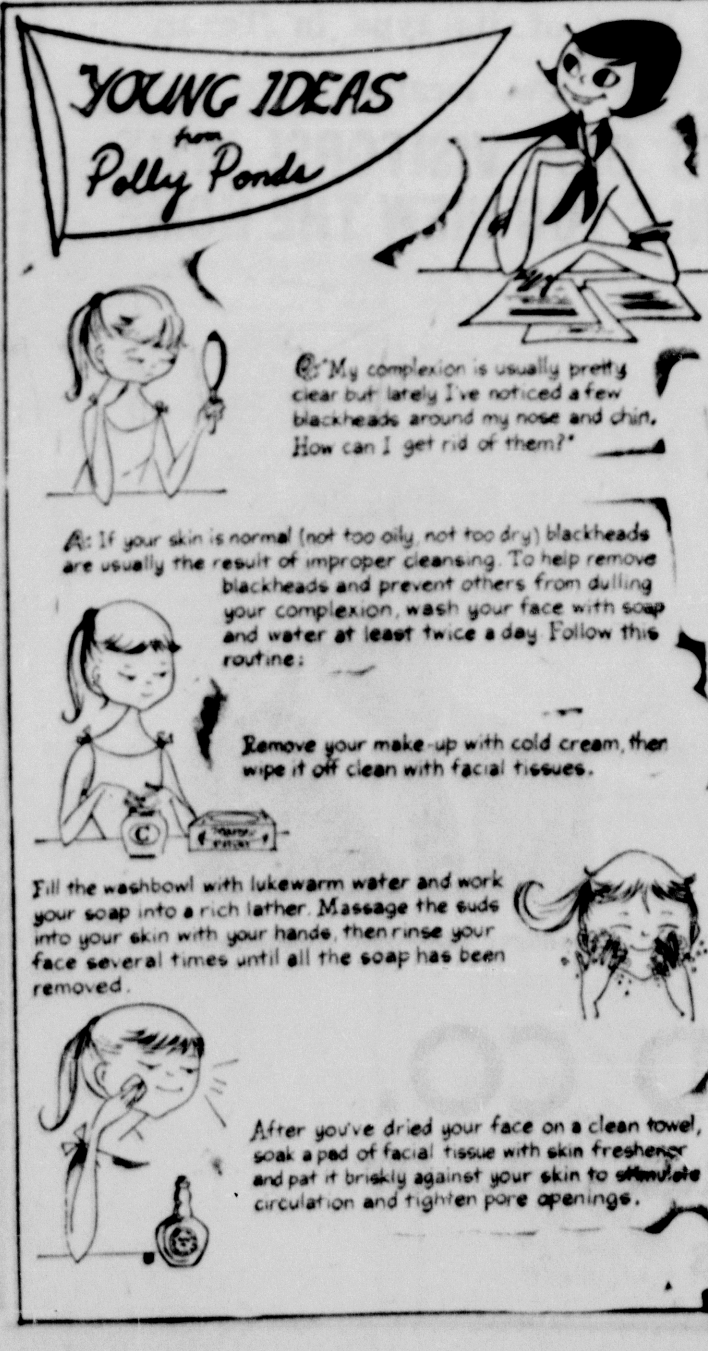 YOUNG IDEAS
from
Polly Ponds
Q: "My complexion is usually pretty
clear but lately I've noticed a few
blackheads around my nose and chin.
How can I get rid of them?"
A: If your skin is normal (not too oily, not too dry) blackheads
are usually the result of improper cleansing. To help remove
blackheads and prevent others from dulling
your complexion, wash your face with soap
and water at least twice a day. Follow this
routine:
Remove your make-up with cold cream, then
wipe it off clean with facial tissues.
C
Fill the washbowl with lukewarm water and work
your soap into a rich lather. Massage the suds
into your skin with your hands, then rinse your
face several times until all the soap has been
removed.
After you've dried your face on a clean towel,
soak a pad of facial tissue with skin freshener
and pat it briskly against your skin to stimulate
circulation and tighten pore openings.